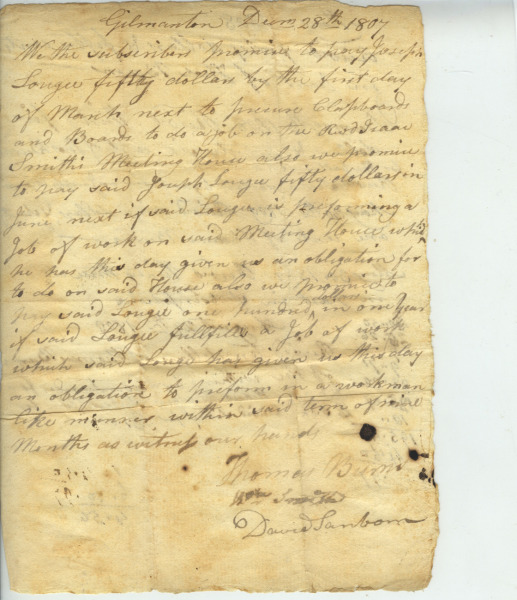 Gilmanton Decm 28th 1807
We the subscribers promise to pay Joseph
Lougee fifty dollars by the first day
of March next to procure Clapboards
and Boards to do a job on the Revd Isaac
Smiths Meeting House also we promise
to pay said Joseph Lougee fifty dollars in
June next if said Lougee is preforming a
Job of work on said Meeting House which
he has this day given us an obligation for
to do on said House also we promise to
pay said Lougee one hundred dollars in one Year
if said Lougee fullfills a Job of work
which said Lougee has given us this day
an obligation to preform in a workman
like manner within said term of
Months as witness our hands
Thomas
David Sanborn